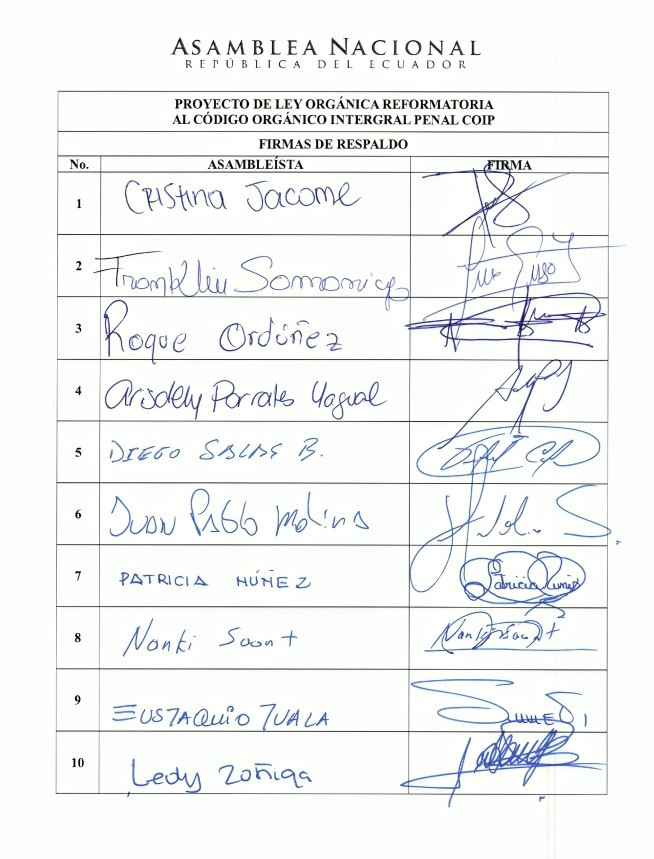 ASAMBLEA NACIONAL
REPÚBLICA DEL ECUADOR
PROYECTO DE LEY ORGÁNICA REFORMATORIA
AL CÓDIGO ORGÁNICO INTERGRAL PENAL COIP
FIRMAS DE RESPALDO
No. ASAMBLEÍSTA FIRMA
1 CRISTINA Jacome
2 Franklin
3 Roque Ordóñez
4 Yagual
5 DIEGO SALAS B.
6 JUAN PABLO Molina
7 PATRICIA NÚÑEZ Patricia Núñez
8 Nanki Saant Nanki Saant
9 EUSTAQUIO TUALA
10 Ledy Zúñiga